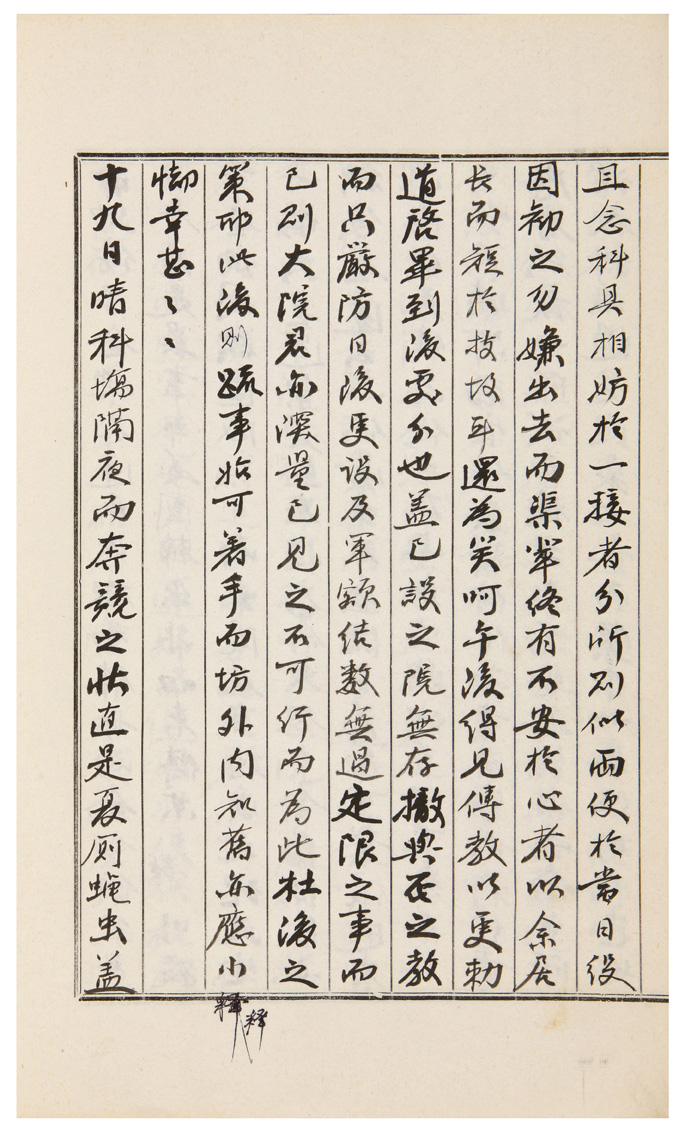 且念科具相妨於一接者分所則似兩便於當日役
因勸之勿嫌出去而渠輩終有不安於心者以余居
長而短於技故耳還為笑呵午後得見傳教以更勅
道啓畢到後處分也盖已設之院無存撤與否之教
而只嚴防日後更設及軍額結數無過定限之事而
已則大院君亦深量已見之不可行而為此杜後之
策耶此後則疏事始可着手而坊外內知舊亦應小
釋釋
幸甚〻〻
十九日晴科場隔夜而奔競之狀直是夏厠蝇虫盖